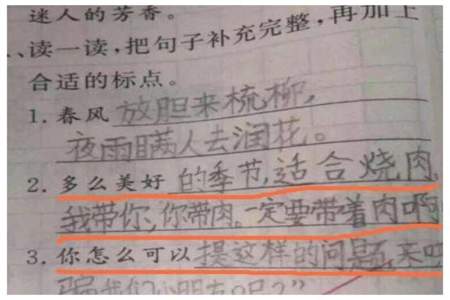 迷人的芳香。
、读一读,把句子补充完整,再加上
合适的标点。
1.春风放胆来梳柳,
夜雨瞒人去润花。
2.多么美好的季节,适合烧肉
我带你,你带肉。一定要带着肉啊
3.你怎么可以提这样的问题,来
骗我们小朋友呢?”